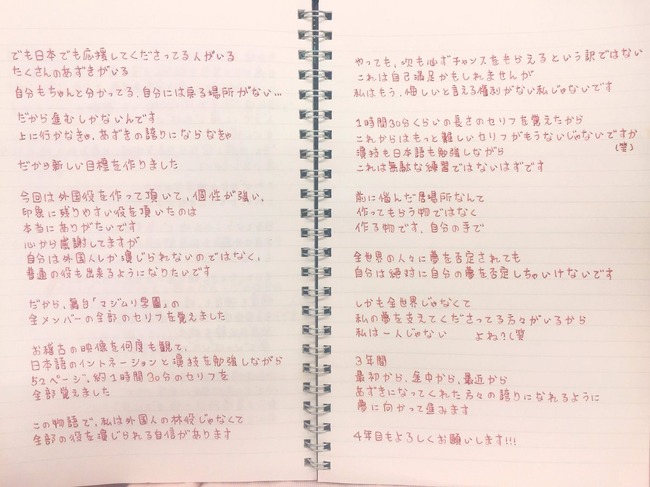 でも日本でも応援してくださってる人がいる
たくさんのあずきがいる
自分もちゃんと分かってる、自分には戻る場所がない...
だから進むしかないんです
上に行かなきゃ、あずきの誇りにならなきゃ
だから新しい目標を作りました
今回は外国役を作って頂いて、個性が強い、
印象に残りやすい役を頂いたのは
本当にありがたいです
心から感謝してますが
自分は外国人しか演じられないのではなく、
普通の役も出来るようになりたいです
だから、舞台「マジムリ学園」の
全メンバーの全部のセリフを覚えました
お稽古の映像を何度も観て、
日本語のイントネーションと演技を勉強しながら
52ページ、約1時間30分のセリフを
全部覚えました
この物語で、私は外国人の林役じゃなくて
全部の役を演じられる自信があります
やっても、次も必ずチャンスをもらえるという訳ではない
これは自己満足かもしれませんが
私はもう、悔しいと言える権利がない私じゃないです
1時間30分くらいの長さのセリフを覚えたから
これからはもっと難しいセリフがもうないじゃないですか
(笑)
演技も日本語も勉強しながら
これは無駄な練習ではないはずです
前に悩んだ居場所なんて
作ってもらう物ではなく
作る物です、自分の手で
全世界の人々に夢を否定されても
自分は絶対に自分の夢を否定しちゃいけないです
しかも全世界じゃなくて
私の夢を支えてくださってる方々がいるから
私は一人じゃない よね?(笑
3年間
最初から、途中から、最近から
あずきになってくれた方々の誇りになれるように
夢に向かって進みます
4年目もよろしくお願いします!!!